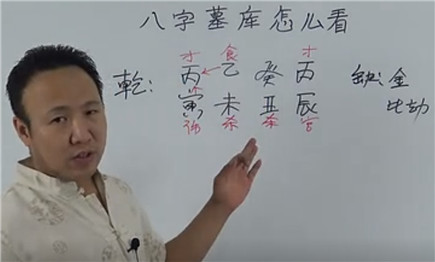 八字墓库怎么看
才 食 才
乾: 丙 乙 癸 丙 缺:金
寅 未 丑 辰 比劫
伤 杀 杀 官